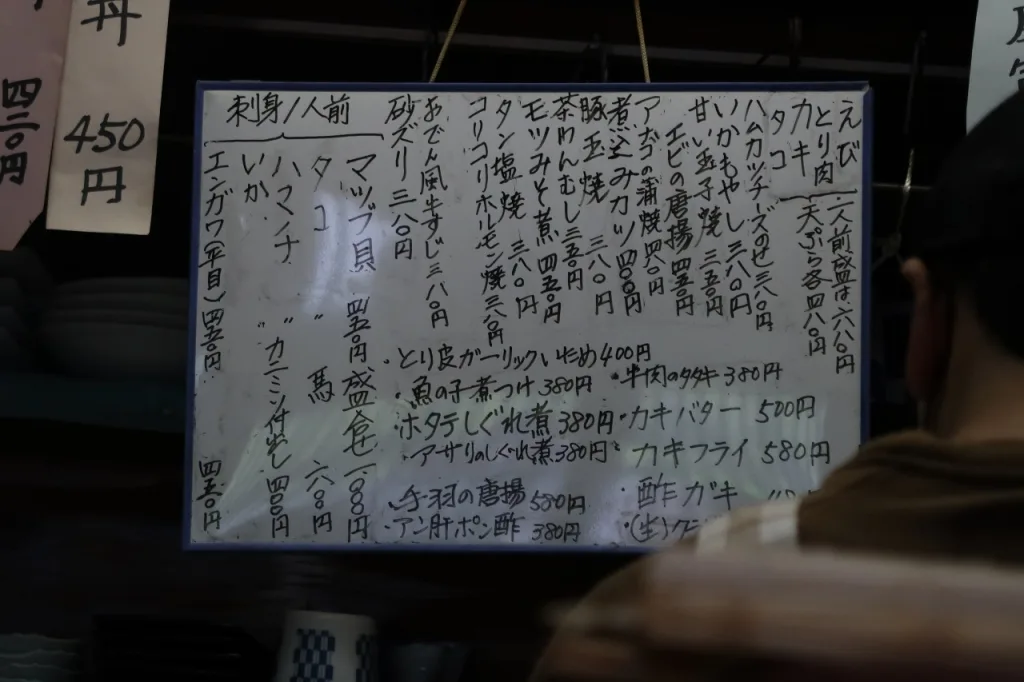 えび
とり肉
カキ
タコ
一人前盛は六八〇円
天ぷら各四八〇円
ハムカツチーズのせ三八〇円
いかもやし三八〇円
甘い玉子焼三五〇円
エビの唐揚四五〇円
アナゴの蒲焼四八〇円
煮込みカツ四〇〇円
豚玉焼三八〇円
茶わんむし三五〇円
モツみそ煮四五〇円
タン塩焼三八〇円
コリコリホルモン焼三八〇円
おでん風牛すじ三八〇円
砂ズリ三八〇円
刺身/人前
マツブ貝 四五〇円
タコ 〃
ハマチ 〃
いか
エンガワ(平目)四五〇円
盛合せ一、〇〇〇円
馬 六〇〇円
カニミソ付出し四〇〇円
四五〇円
・とり皮ガーリックいため400円
・魚の子煮つけ380円
・ホタテしぐれ煮380円
・アサリのしぐれ煮380円
・手羽の唐揚580円
・アン肝ポン酢380円
・牛肉のタタキ380円
・カキバター 500円
・カキフライ 580円
・酢ガキ
・(生)
丼
450円
四二〇円